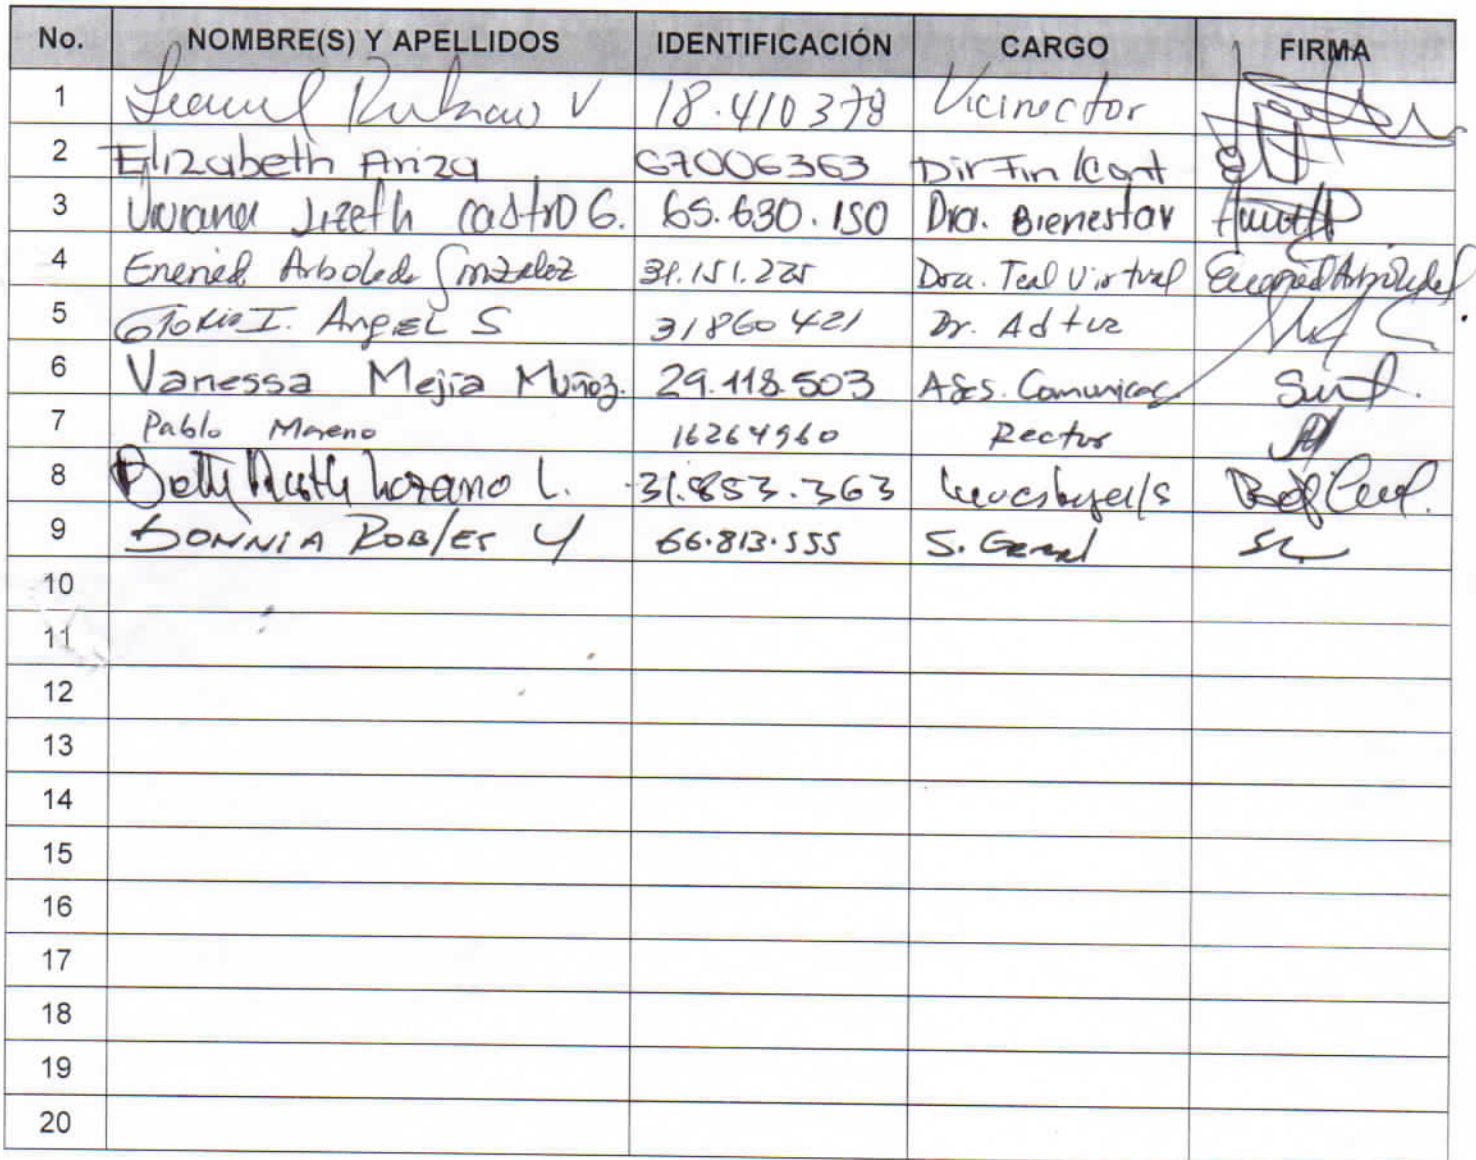 No. NOMBRE(S) Y APELLIDOS IDENTIFICACIÓN CARGO FIRMA
1 V 18.410378 Vicirrector
2 Elizabeth Ariza 67006363 Dir Fin/Cont
3 Viviana Lizeth Castro G. 65.630.150 Dra. Bienestar
4 Eneried Arboleda González 31.151.225 Dra. Teal Virtual
5 Gloria I. Angel S 31860421 Dr.
6 Vanessa Mejía Muñoz. 29.118.503 Ases. Comunicac
7 Pablo Moreno 16264960 Rector
8 Betty Ruth Lozano L. 31.853.363
9 Sonnia Robles Y 66.813.555 S. General
10
11
12
13
14
15
16
17
18
19
20